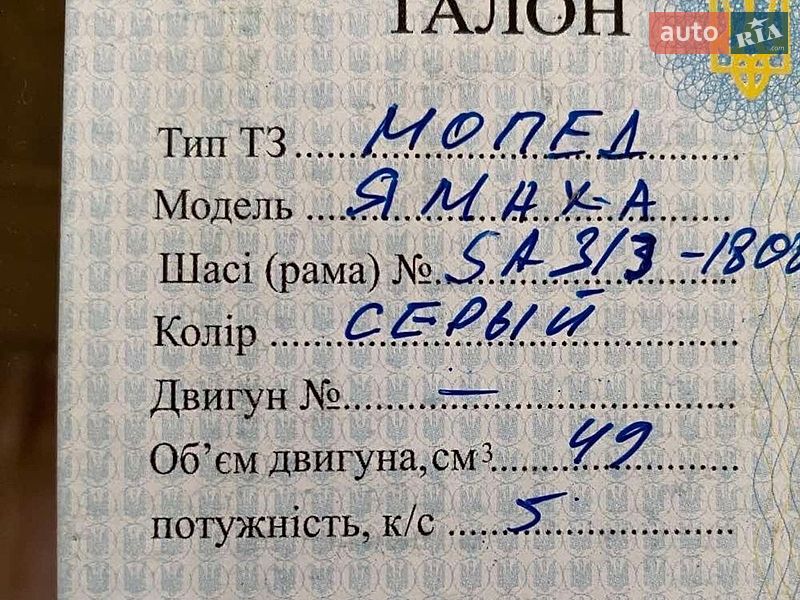 ТАЛОН
auto RIA .com
Тип ТЗ МОПЕД
Модель ЯМАХА
Шасі (рама) № SA313-1808
Колір СЕРЫЙ
Двигун № —
Об’єм двигуна, см³ 49
потужність, к/с 5